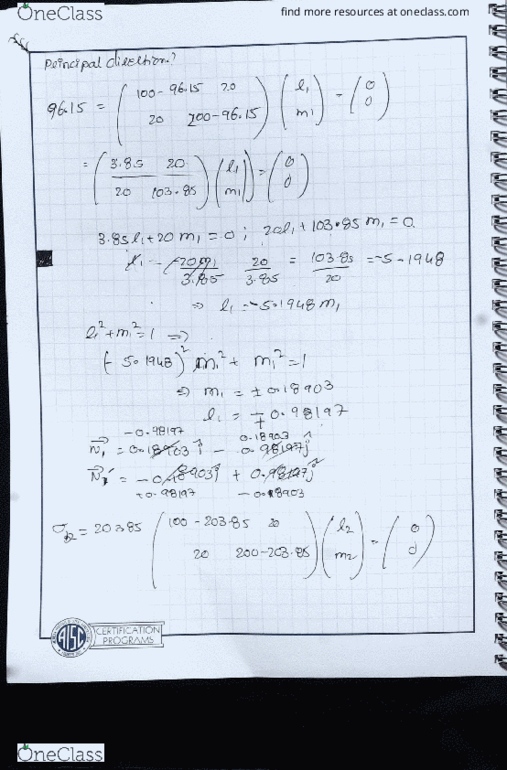 OneClass
find more resources at oneclass.com
Principal direction?
96.15 = ( 100-96.15 20 ) ( l₁ ) = ( 0 )
( 20 200-96.15 ) ( m₁ ) ( 0 )
= ( 3.85 20 ) ( l₁ ) = ( 0 )
( 20 103.85 ) ( m₁ ) ( 0 )
3.85 l₁ + 20 m₁ = 0 ; 20 l₁ + 103.85 m₁ = 0
20 m₁ / 3.85 20 / 3.85 = 103.85 / 20 = -5.1948
⇒ l₁ = -5.1948 m₁
l₁² + m₁² = 1 ⇒
(-5.1948)² m₁² + m₁² = 1
⇒ m₁ = ±0.18903
l₁ = ∓0.98197
-0.98197 0.18903
n₁ = 0.18903 i - 0.98197 j
n₁' = -0.18903 i + 0.98197 j
+0.98197 -0.18903
σ₂ = 203.85 ( 100-203.85 20 ) ( l₂ ) = ( 0 )
( 20 200-203.85 ) ( m₂ ) ( 0 )
AISC
CERTIFICATION
PROGRAMS
OneClass